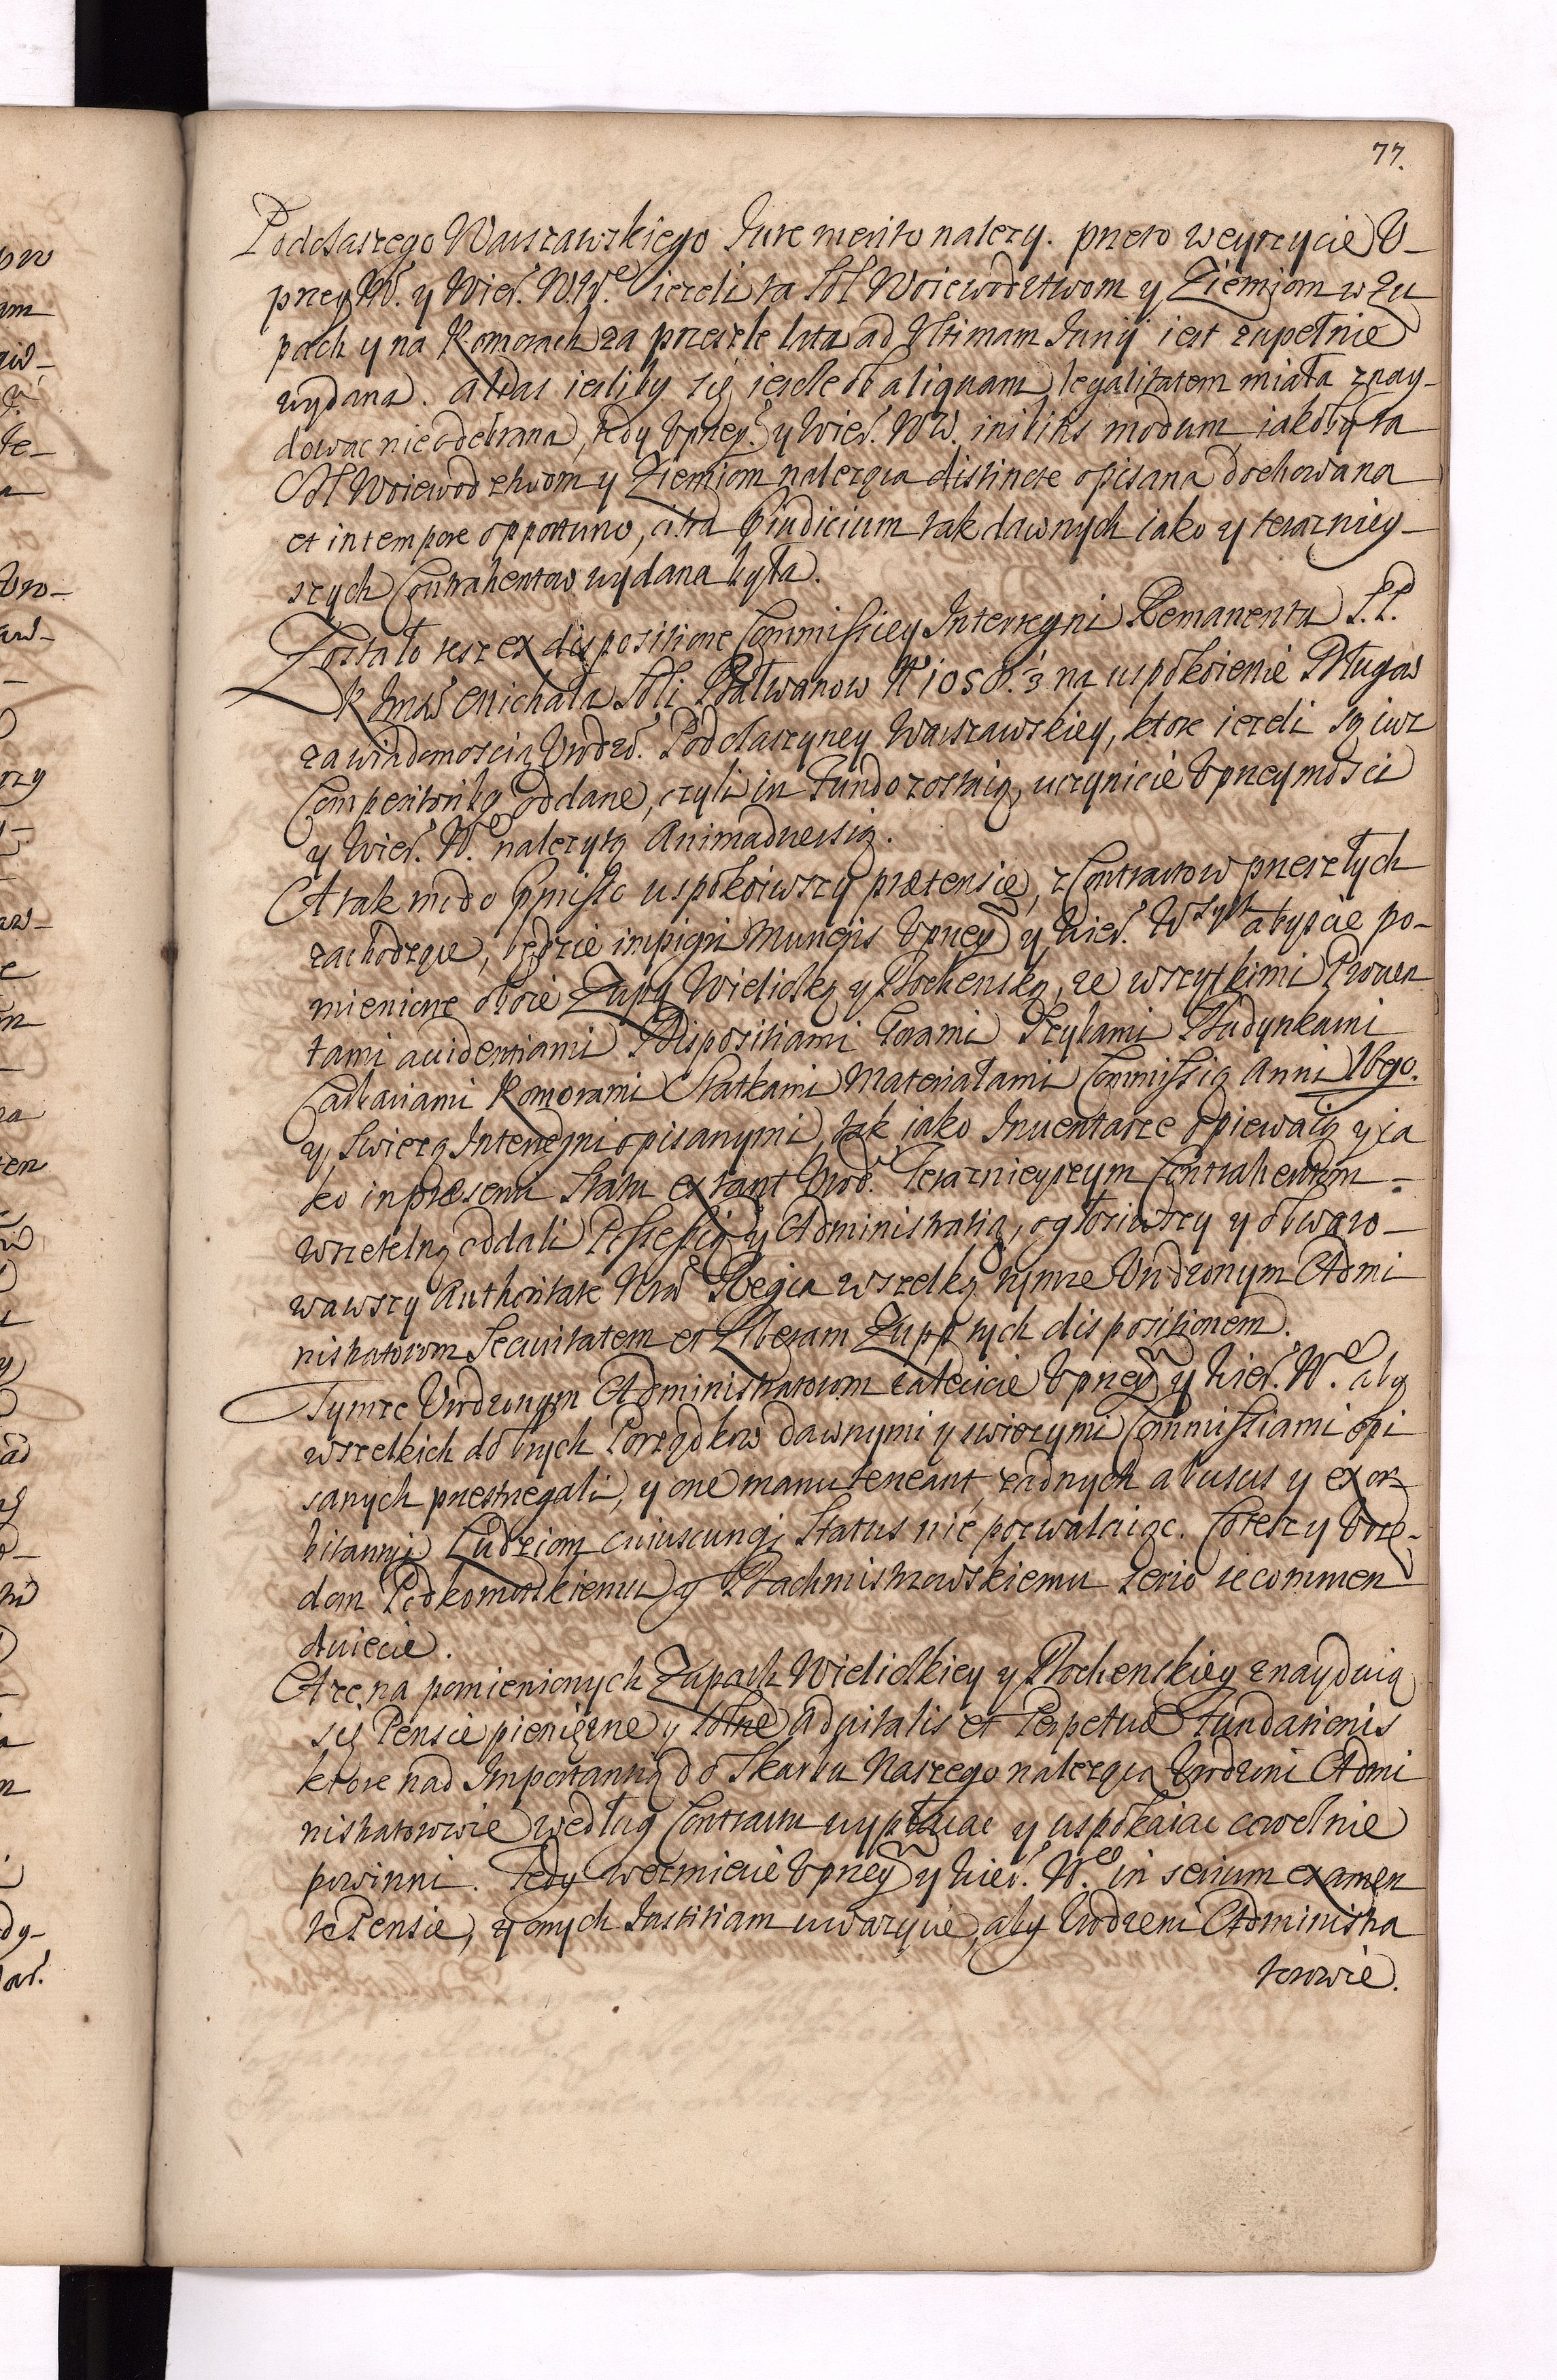 77.
Podczaszego Warszawskiego Iure merito nalezy. przeto weyrzycie V-
przey W. y Wier. W.W. iezeli ta Sol Woiewodztwom y Ziemiom w Zu
pach y na Komorach za przeszłe lata ad Vltimam Iunij iest zupełnie
wydana. a czas iesliby się ieszcze ob aliquam legalitatem miała znay-
dowac nie odebrana, tedy Vprzey. y Wier. WW. inibitis modum, iakoby ta
Sol Woiewodztwom y Ziemiom naleząca distincte opisana dochowana
et in tempore opportuno, citra Præiudicium tak dawnych iako y terazniey-
szych Contrahentow wydana była.
Zostało tesz ex dispositione Commissiey Interregni Remanentu S.P.
K Imsc Michała Soli Bałwanow N 1050. 3 na uspokoienie Długow
za wiadomoscią Vrodz. Podczaszyney Warszawskiey, ktore iezeli są iusz
Competitoribq oddane, czyli in Fundo zostaią, uczynicie Vprzeymosci
y Wier. W. nalezytą Animadversią.
A tak modo præmisso uspokoiwszy prætensie, z Contractow przeszłych
zachodzące, będzie impigri Muneris Vprzey y Wier. W abyscie po-
mienione oboie Zupy Wielicką y Bochenską, ze wszytkimi Proven
tami accidentiami Dispositiami Gorami Szybami Budynkami
Karbariami Komorami Statkami Materiałami Commissią Anni 1690.
y swiezą Interregni opisanymi, tak iako Inuentarze opiewaią y ia
ko in præsenti Statu extant Vrod. Terazniejszym Contrahentom
w rzetelną oddali Possessią y Administratią, ogłosiwszy y obwaro-
wawszy Authoritate Nra Regia wszelką tymze Vrodzonym Admi
nistratorom Securitatem et Liberam Zupp tych dispositionem.
Tymze Vrodzonym Administratorom zalecicie Vprzey y Wier. W. aby
wszelkich dobrych Porządkow dawnymi y swiezymi Commissiami opi
sanych przestrzegali, y one manuteneant, zadnych abusus y exor-
bitantij Ludziom cuiuscunq Status nie pozwalaiąc. Co tesz y Vrzę-
dom Podkomorskiemu y Bachmistrzowskiemu serio recommen
duiecie.
A ze na pomienionych Zupach Wielickiey y Bochenskiey znayduią
się Pensie pieniężne y solne advitalis et Perpetuæ Fundationis
ktore nad Importantią do Skarbu Naszego nalezącą Vrodzoni Admi
nistratorowie według Contractu wypłacac y uspokaiac cocelnie
powinni. Tedy wezmiecie Vprzey y Wier. W. in serium examen
te Pensie, y onych Iustitiam uwazycie, aby Vrodzeni Administra
torowie.